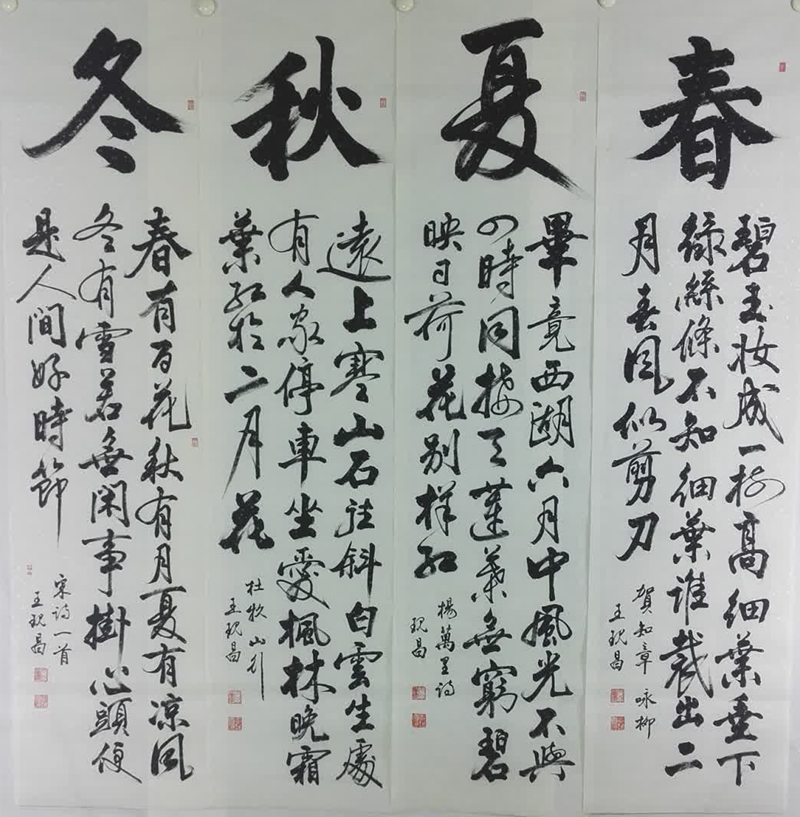 春
碧玉妆成一樹高细葉垂下
綠絲絛不知细葉谁裁出二
月春風似剪刀
賀知章 咏柳
王現昌
夏
畢竟西湖六月中風光不與
四時同接天蓮葉無窮碧
映日荷花别樣紅
楊萬里詩
現昌
秋
遠上寒山石径斜白雲生處
有人家停車坐愛楓林晚霜
葉紅於二月花
杜牧山行
王現昌
冬
春有百花秋有月夏有凉風
冬有雪若無闲事掛心頭便
是人間好時節
宋詩一首
王現昌